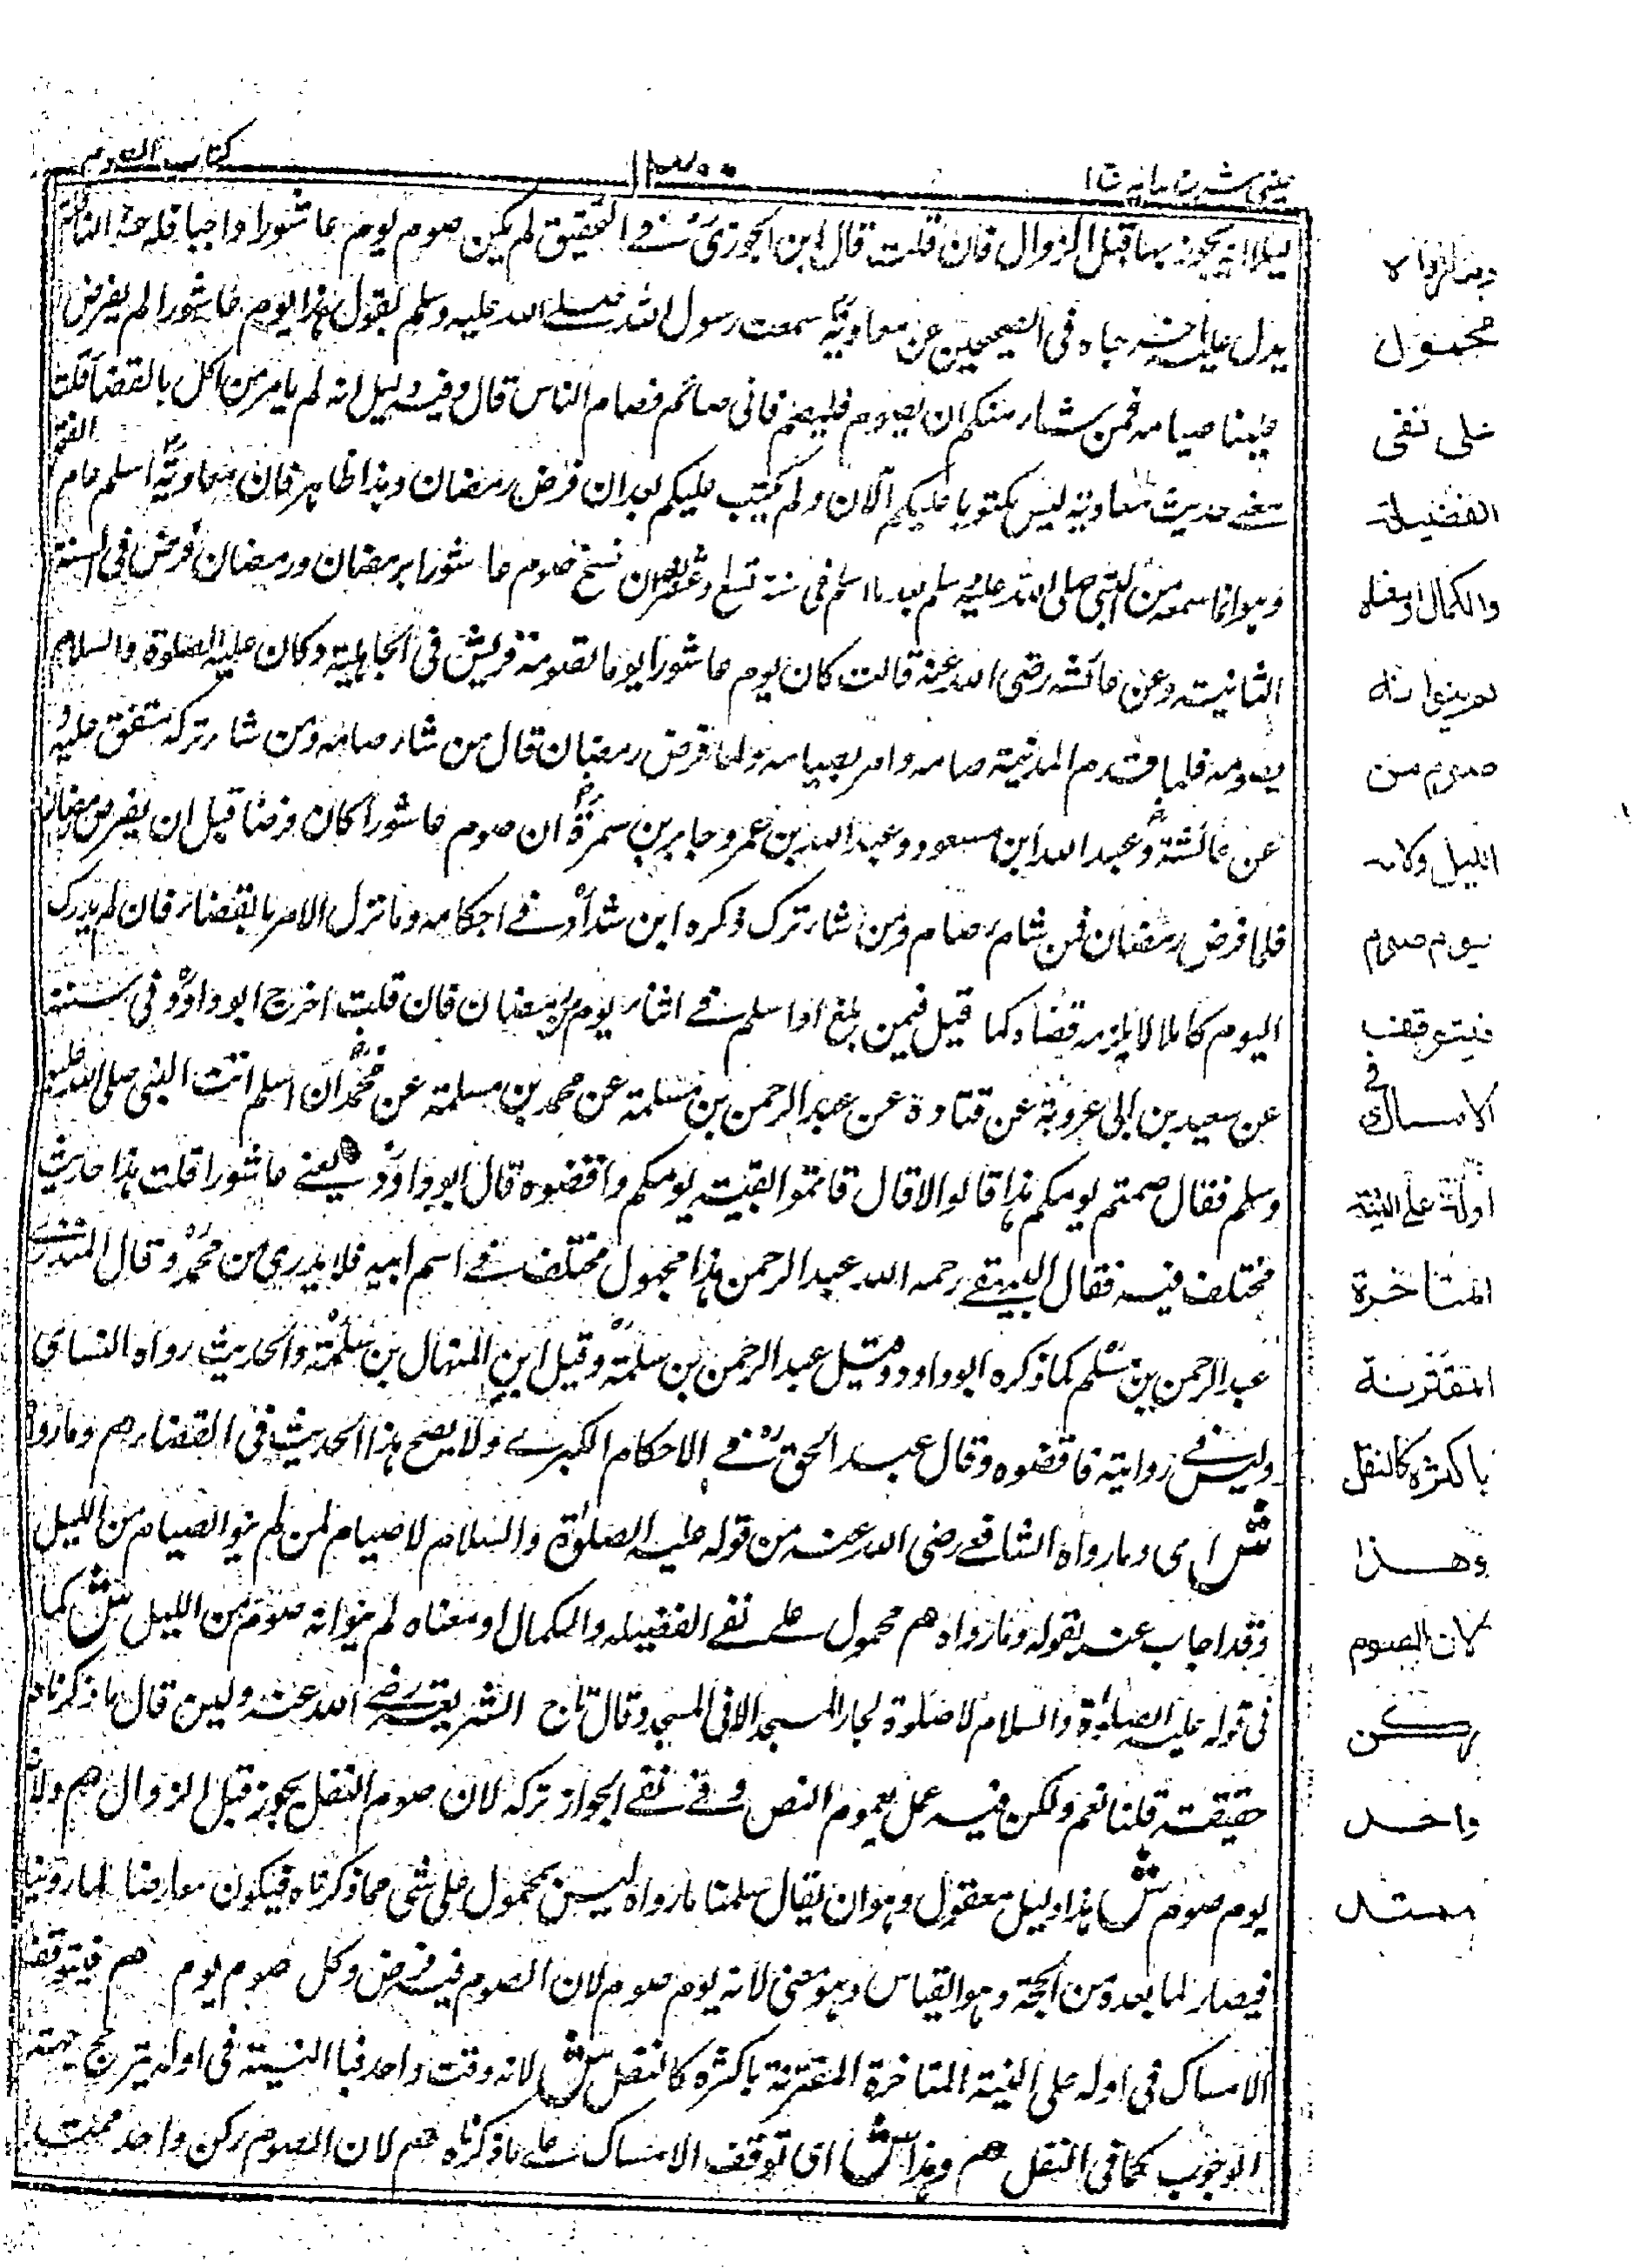 عيني شرح هدايه ج ١
١٣٠٠
كتاب الصوم
ليلا انه يجوز بها قبل الزوال فان قلت قال ابن الجوزيؒ في التحقيق لم يكن صوم يوم عاشورا واجبا فله حكم النافلة
يدل عليه اخرجاه في الصحيحين عن معاويةؓ سمعت رسول الله صلى الله عليه وسلم يقول هذا يوم عاشورا لم يفرض
علينا صيامه فمن شاء منكم ان يصوم فليصم فاني صائم فصام الناس قال وفيه دليل انه لم يامر من اكل بالقضا قلت
معنى حديث معاوية ليس مكتوبا عليكم الآن ولم يكتب عليكم بعد ان فرض رمضان وهذا ظاهر فان معاويةؓ اسلم عام الفتح
وهو انما سمعه من النبي صلى الله عليه وسلم بعد ما اسلم في سنة تسع او عشر بعد ان نسخ صوم عاشورا برمضان ورمضان فرض في السنة
الثانية وعن عائشه رضى الله عنه قالت كان يوم عاشورا يوما تصومه قريش في الجاهلية وكان عليه الصلوة والسلام
يصومه فلما قدم المدينة صامه وامر بصيامه ولما فرض رمضان قال من شاء صامه ومن شاء تركه متفق عليه و
عن عائشةؓ وعبد الله ابن مسعود وعبد الله بن عمر وجابر بن سمرةؓ ان صوم عاشورا كان فرضا قبل ان يفرض رمضان
فلما فرض رمضان فمن شاء صام ومن شاء ترك ذكره ابن شدادؒ في احكامه وما ترك الامر بالقضاء فان لم يدرك
اليوم كاملا لا يلزمه قضاؤه كما قيل فيمن بلغ او اسلم في اثناء يوم من رمضان فان قلت اخرج ابو داودؒ في سننه
عن سعيد بن ابي عروبة عن قتادة عن عبد الرحمن بن مسلمة عن محمد بن مسلمة عن محمدؓ ان اسلم اتت النبي صلى الله عليه
وسلم فقال صمتم يومكم هذا قالوا لا قال فاتموا بقية يومكم واقضوه قال ابو داودؒ يعني عاشورا قلت هذا حديث
مختلف فيه فقال البيهقي رحمه الله عبد الرحمن هذا مجهول مختلف في اسم ابيه فلا يدري من محمدؒ وقال المنذري
عبد الرحمن بن مسلم كما ذكره ابو داود وقيل عبد الرحمن بن سلمةؒ وقيل ابن المنهال بن سلمة والحديث رواه النسائي
وليس في روايته فاقضوه وقال عبد الحقؒ في الاحكام الكبرى ولا يصح هذا الحديث في القضاء هم وما رواه
ش اى وما رواه الشافعي رضى الله عنه من قوله عليه الصلوة والسلام لا صيام لمن لم ينو الصيام من الليل
وقد اجاب عنه بقوله وما رواه هم محمول على نفي الفضيلة والكمال او معناه لم ينو انه صوم من الليل ش كما
في قوله عليه الصلوة والسلام لا صلوة لجار المسجد الا في المسجد وقال تاج الشريعة رضي الله عنه ولئن قال ما ذكرناه
حقيقة قلنا نعم ولكن فيه عمل بعموم النص وفي نفي الجواز تركه لان صوم النفل يجوز قبل الزوال هم ولانه
يوم صوم ش هذا دليل معقول وهو ان يقال سلمنا ما رواه ليس بمحمول على شى مما ذكرناه فيكون معارضا لما روينا
فيصار لما بعده من الحجة وهو القياس وهو معنى لانه يوم صوم لان الصوم فيه فرض وكل صوم يوم هم فيتوقف
الامساك في اوله على النية المتاخرة المقترنة باكثره كالنفل ش لانه وقت واحد فبا النية في اوله يترجح جهة
الوجوب كما في النفل هم وهذا ش اى توقف الامساك على ما ذكرناه هم لان الصوم ركن واحد ممتد
وما رواه
محمول
على نفى
الفضيلة
والكمال او معناه
لم ينو انه
صوم من
الليل ولانه
يوم صوم
فيتوقف
الامساك في
اوله على النية
المتاخرة
المقترنة
باكثره كالنفل
وهذا
لان الصوم
ركن
واحد
ممتد